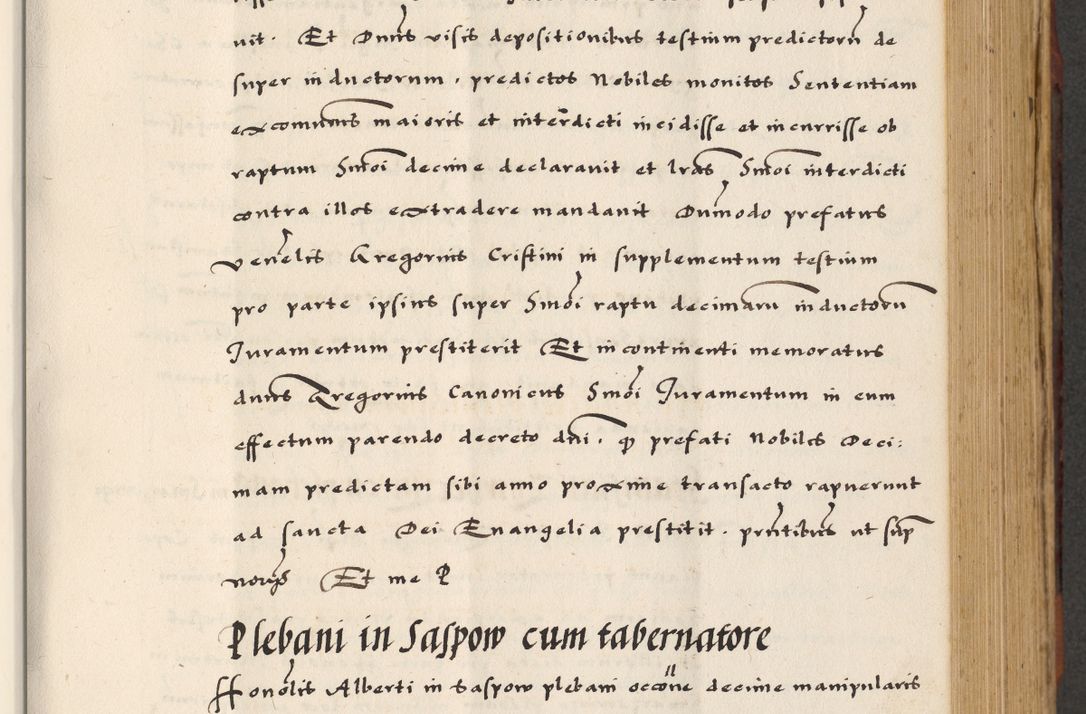 uit. Et Dnus visis depositionibus testium predictoru de
super inductorum, predictos Nobiles monitos Sententiam
excomunis maioris et interdicti incidisse et incurrisse ob
raptum Smoi decime declarauit et lras Smoi interdicti
contra illos extradere mandauit Dumodo prefatus
venelis Gregorius Cristini in supplementum testium
pro parte ipsius super Smoi raptu decimaru inductoru
Iuramentum prestiterit Et incontinenti memoratus
dnus Gregorius Canonicus Smoi Iuramentum in eum
effectum parendo decreto dni. qp prefati Nobiles Deci:
mam predictam sibi anno proxime transacto rapuerunt
ad sancta Dei Euangelia prestitit. pntibus ut sup
Et me P
Plebani in Saspow cum tabernatore
Honolis Alberti in Saspow plebani occone decime manipularis